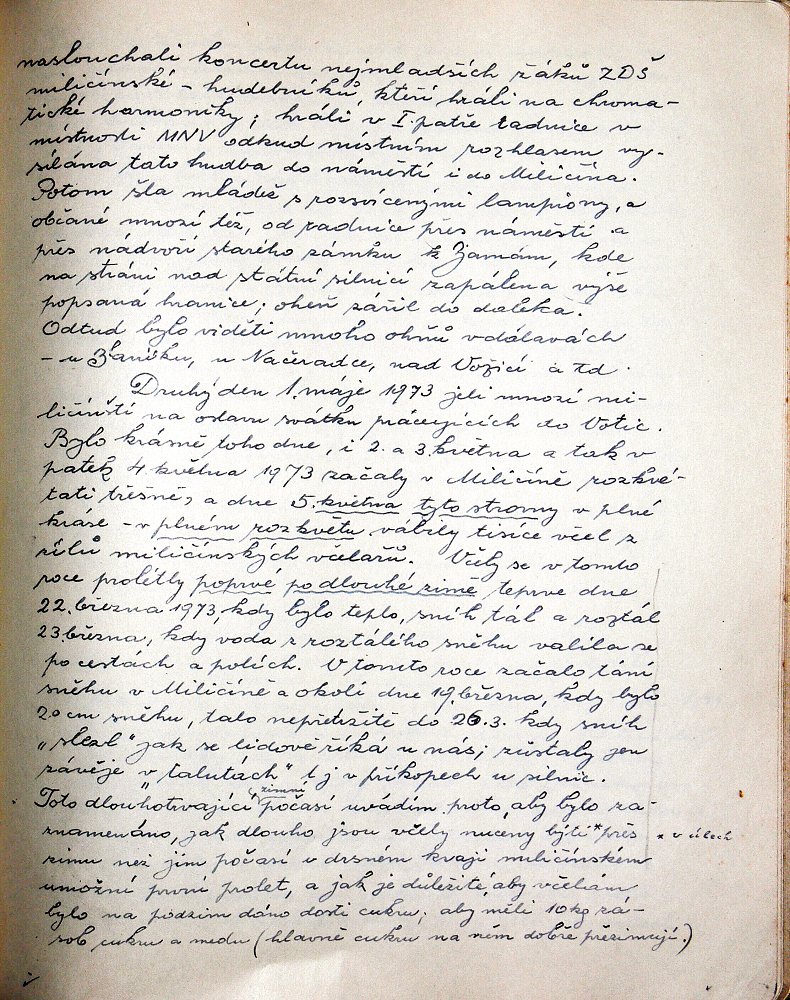 naslouchali koncertu nejmladších žáků ZDŠ
miličínské - hudebníků, kteří hráli na chroma-
tické harmoniky; hráli v I. patře radnice v
místnosti MNV odkud místním rozhlasem vy-
sílána tato hudba do náměstí i do Miličína.
Potom šla mládež s rozsvícenými lampiony, a
občané mnozí též, od radnice přes náměstí a
přes nádvoří starého zámku k Jamám, kde
na stráni nad státní silnicí zapálena výše
popsaná hranice; oheň zářil do daleka.
Odtud bylo viděti mnoho ohňů v dálavách
- u Blaníku, u Načeradce, nad Vožicí a td.
Druhý den 1. máje 1973 jeli mnozí mi-
ličínští na oslavu svátku pracujících do Votic.
Bylo krásně toho dne, i 2. a 3. května a tak v
pátek 4. května 1973 začaly v Miličíně rozkvé-
tati třešně, a dne 5. května tyto stromy v plné
kráse - v plném rozkvětu vábily tisíce včel z
úlů miličínských včelařů. Včely se v tomto
roce prolétly poprvé po dlouhé zimě teprve dne
22. března 1973, kdy bylo teplo, sníh tál a roztál
23. března, kdy voda z roztálého sněhu valila se
po cestách a polích. V tomto roce začalo tání
sněhu v Miličíně a okolí dne 19. března, kdy bylo
20 cm sněhu, talo nepřetržitě do 26.3. kdy sníh
„slezl" jak se lidově říká u nás; zůstaly jen
závěje „v talutách" t j v příkopech u silnic.
Toto dlouhotrvající zimní počasí uvádím proto, aby bylo za-
znamenáno, jak dlouho jsou včely nuceny býti * přes * v úlech
zimu než jim počasí v drsném kraji miličínském
umožní první prolet, a jak je důležité, aby včelám
bylo na podzim dáno dosti cukru; aby měli 10 kg zá-
sob cukru a medu (hlavně cukru na něm dobře přezimují.)